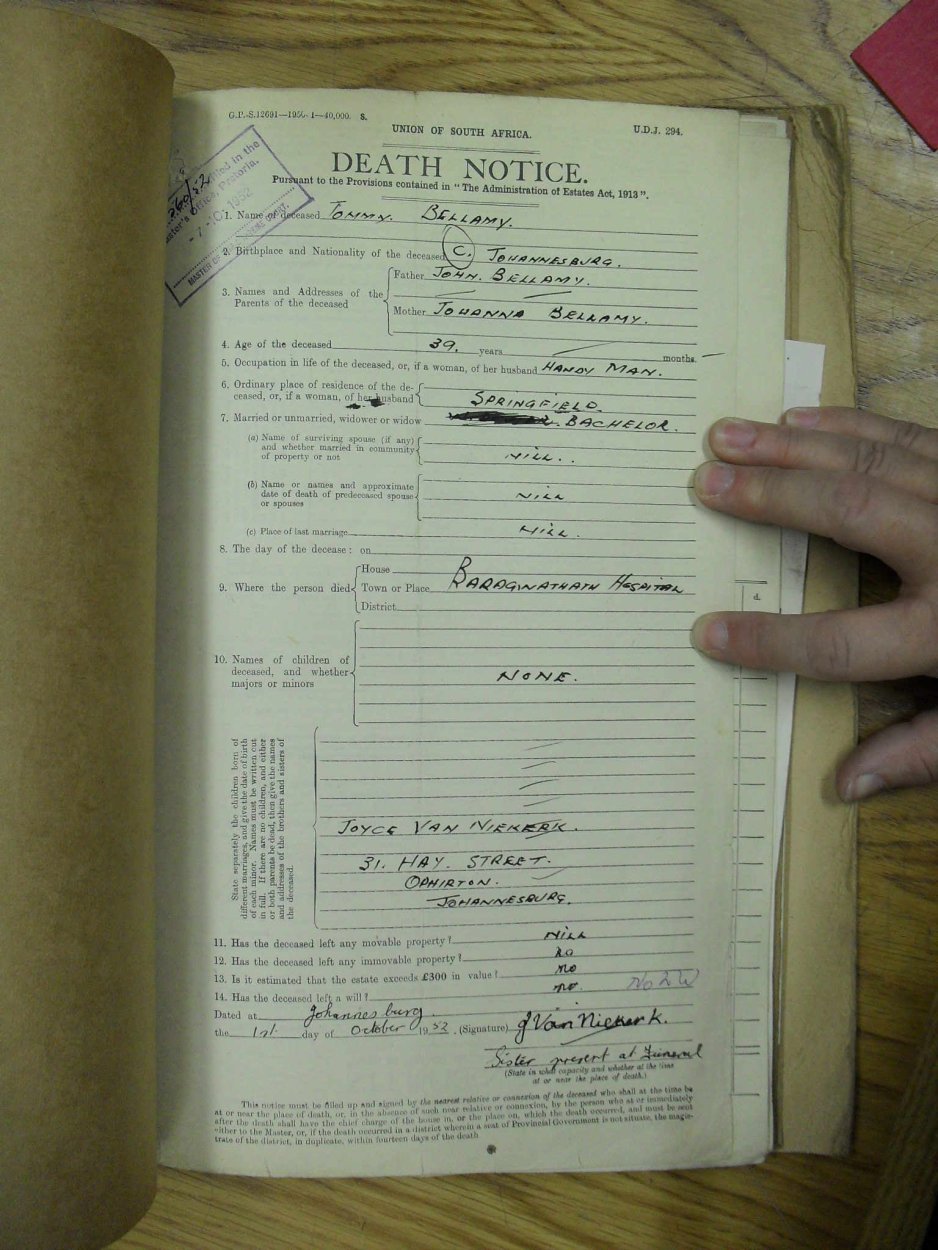 G.P.-S.12691—1950-1—40,000. S.
UNION OF SOUTH AFRICA.
U.D.J. 294.
DEATH NOTICE.
Pursuant to the Provisions contained in "The Administration of Estates Act, 1913".
in the
Master's Office, Pretoria.
-7 10 1952
MASTER OF
1. Name of deceased TOMMY. BELLAMY.
2. Birthplace and Nationality of the deceased C. JOHANNESBURG.
3. Names and Addresses of the Parents of the deceased
Father JOHN. BELLAMY.
Mother JOHANNA BELLAMY.
4. Age of the deceased 39. years months. —
5. Occupation in life of the deceased, or, if a woman, of her husband HANDY MAN.
6. Ordinary place of residence of the de-
ceased, or, if a woman, of her husband SPRINGFIELD.
7. Married or unmarried, widower or widow BACHELOR.
(a) Name of surviving spouse (if any)
and whether married in community
of property or not NILL.
(b) Name or names and approximate
date of death of predeceased spouse
or spouses NILL
(c) Place of last marriage NILL.
8. The day of the decease: on
9. Where the person died
House
Town or Place BARAGWATHATH HOSPITAL
District
d.
10. Names of children of
deceased, and whether
majors or minors
NONE.
State separately the children born of
different marriages, and give the date of birth
of each minor. Names must be written out
in full. If there are no children, and either
or both parents be dead, then give the names
and addresses of the brothers and sisters of
the deceased.
JOYCE VAN NIEKERK.
31. HAY. STREET.
OPHIRTON.
JOHANNESBURG.
11. Has the deceased left any movable property? NILL
12. Has the deceased left any immovable property? no
13. Is it estimated that the estate exceeds £300 in value? no
14. Has the deceased left a will? no.
Dated at Johannesburg.
the 1st day of October 1952. (Signature) J Van Niekerk.
Sister present at Funeral
(State in what capacity and whether at the time
at or near the place of death.)
This notice must be filled up and signed by the nearest relative or connexion of the deceased who shall at the time be
at or near the place of death, or, in the absence of such near relative or connexion, by the person who at or immediately
after the death shall have the chief charge of the house in, or the place on, which the death occurred, and must be sent
either to the Master, or, if the death occurred in a district wherein a seat of Provincial Government is not situate, the magis-
trate of the district, in duplicate, within fourteen days of the death